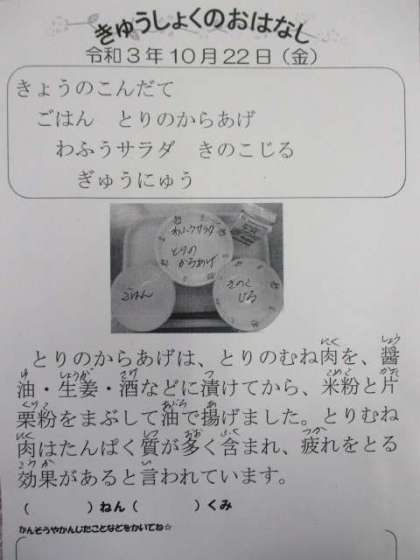 きゅうしょくのおはなし
令和3年10月22日（金）
きょうのこんだて
ごはん　とりのからあげ
わふうサラダ　きのこじる
ぎゅうにゅう
わふうサラダ
とりの
からあげ
ごはん
きのこ
じる
とりのからあげは、とりのむね肉を、醤
油・生姜・酒などに漬けてから、米粉と片
栗粉をまぶして油で揚げました。とりむね
肉はたんぱく質が多く含まれ、疲れをとる
効果があると言われています。
（　　　　）ねん（　　　　）くみ
かんそうやかんじたことなどをかいてね☆